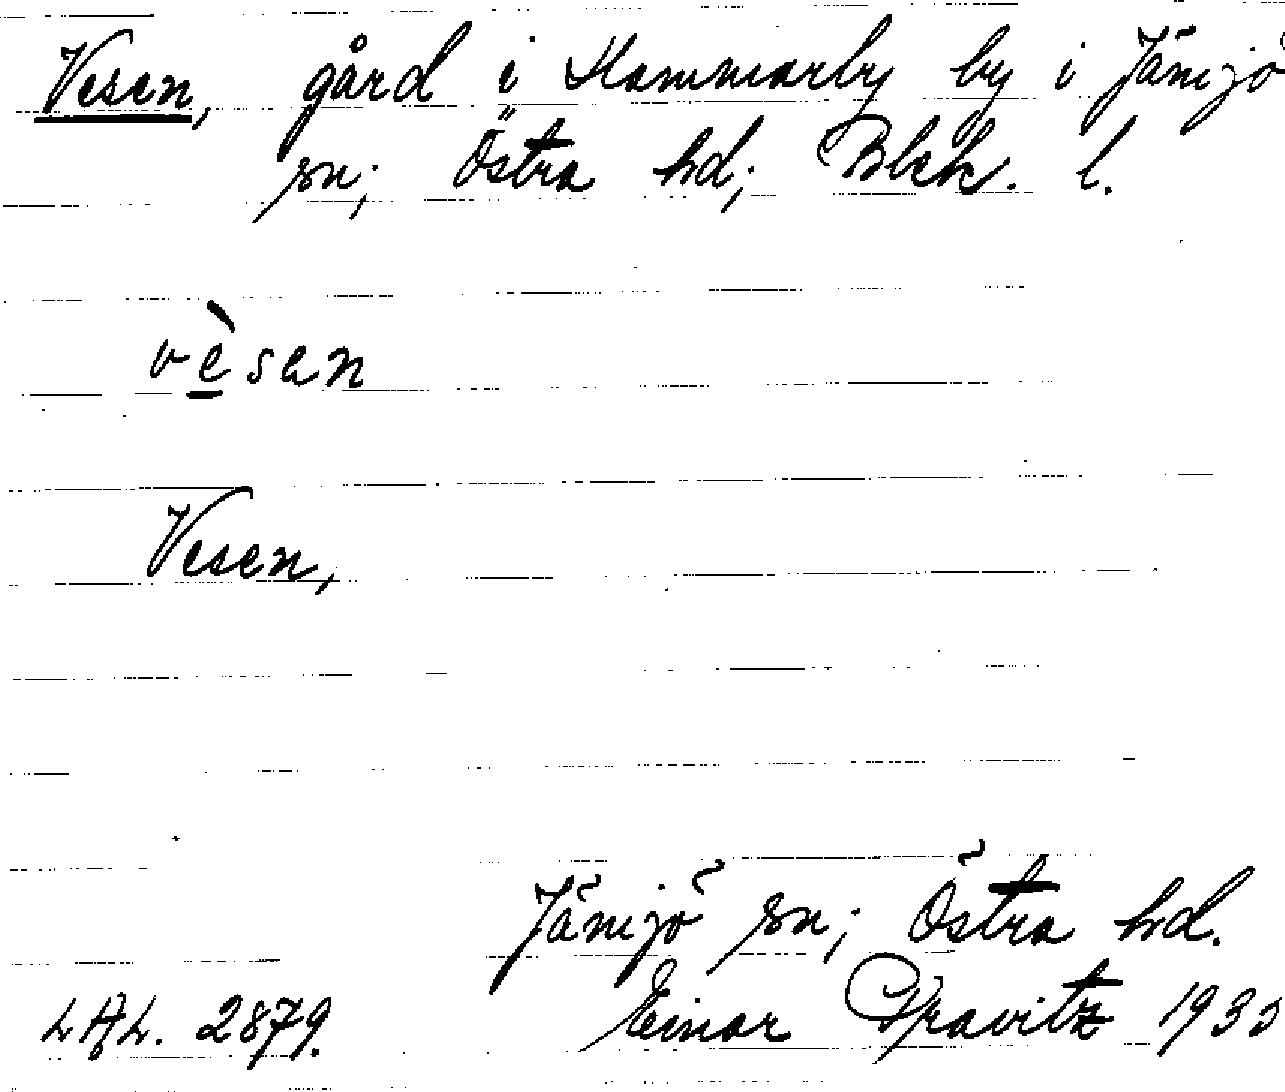 Vesen, gård i Hammarby by i Jämjö
sn; Östra hd; Blek. l.
vèsen
Vesen,
Jämjö sn; Östra hd.
LAL. 2879. Einar Kravitz 193